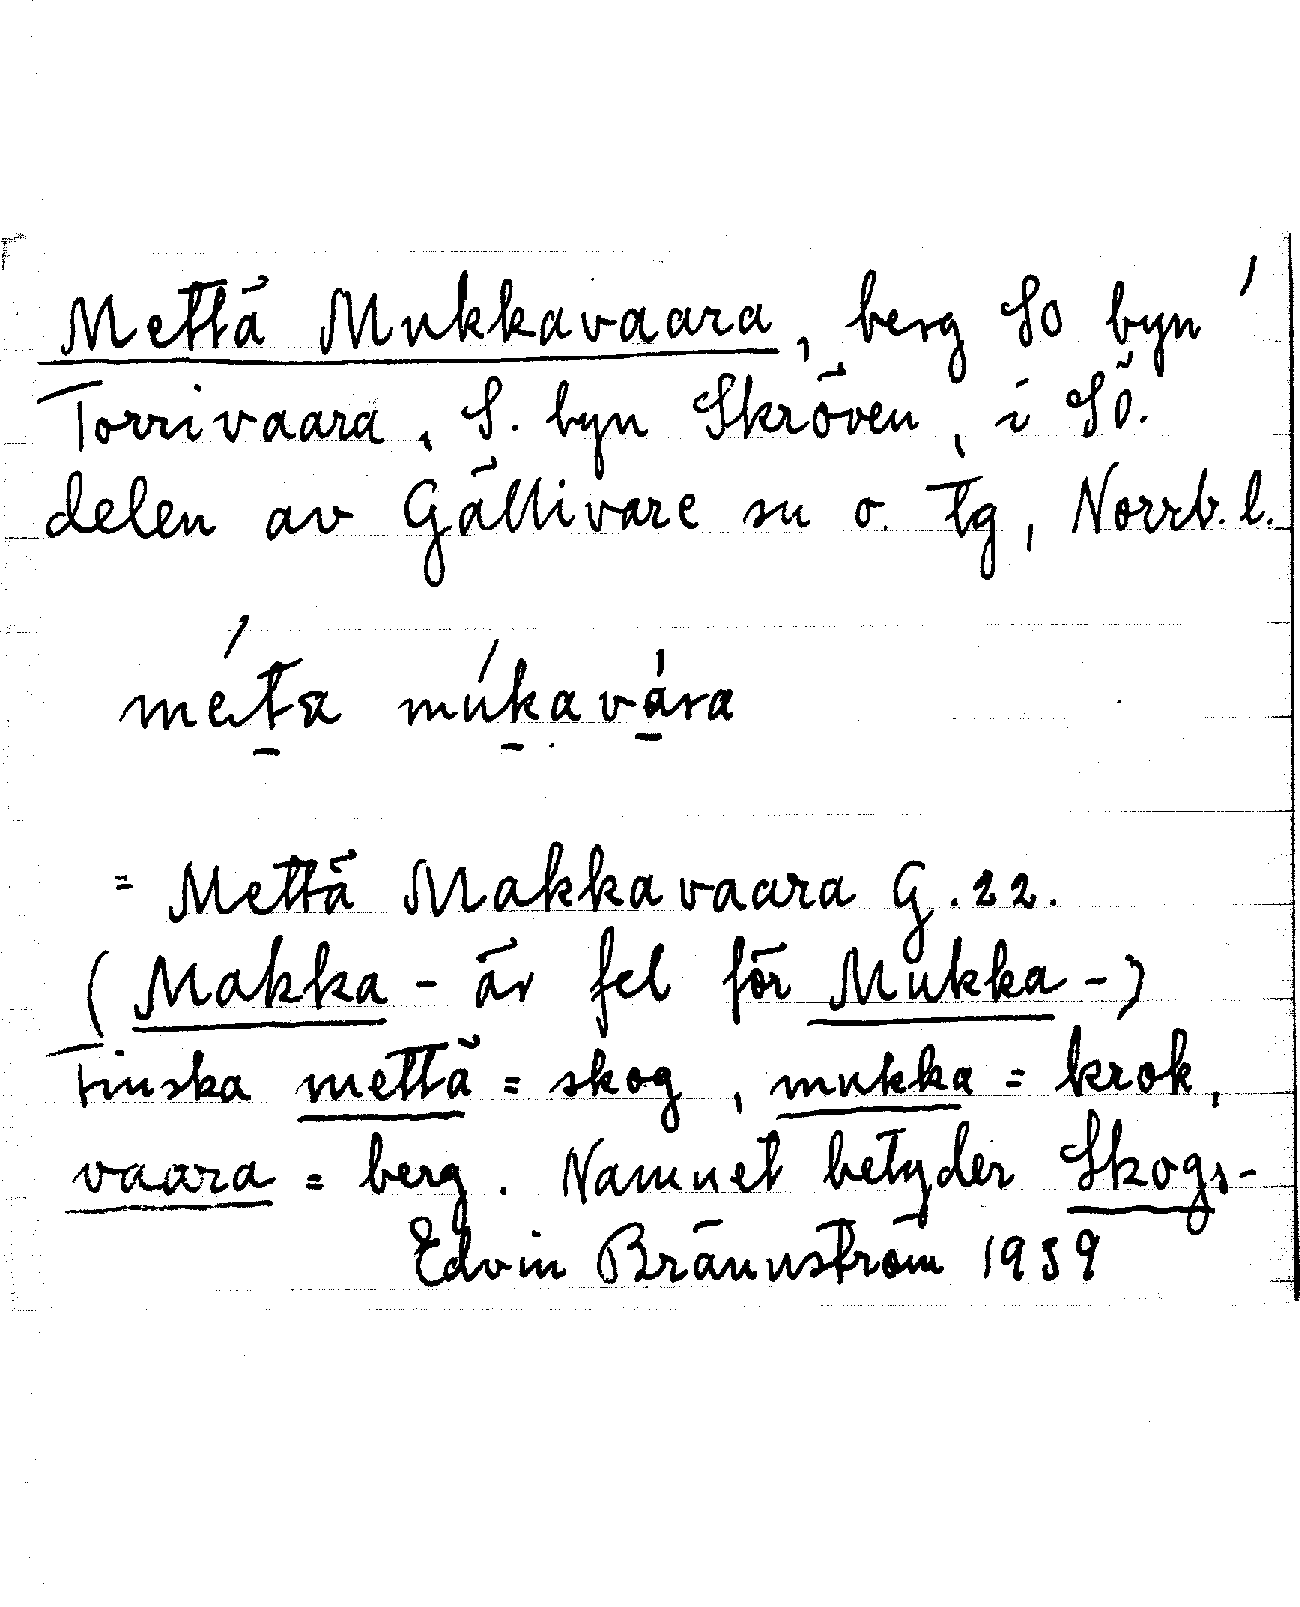 Mettä Mukkavaara, berg SO byn
Torrivaara, S. byn Skröven, i SÖ.
delen av Gällivare sn o. tg, Norrb. l.
méta múkavára
= Mettä Makkavaara G. 22.
(Makka- är fel för Mukka-)
Finska mettä = skog, mukka = krok,
vaara = berg. Namnet betyder Skogs-
Edvin Brännström 1959